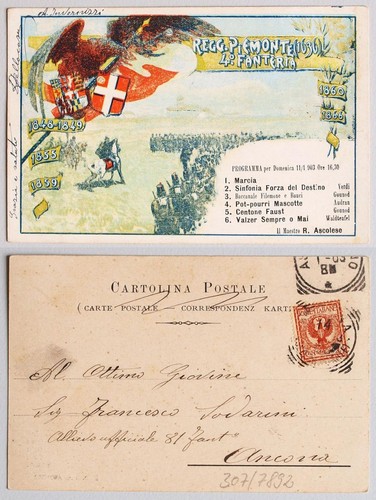 A. Invernizzi
REGG. PIEMONTE (USSO)
4º FANTERIA
1848-1849
1855
1859
1860
1866
PROGRAMMA per Domenica 11/1 903 Ore 16,30
1. Marcia
2. Sinfonia Forza del Destino Verdi
3. Baccanale Filemone e Bauci Gounod
4. Pot-pourri Mascotte Audran
5. Centone Faust Gounod
6. Valzer Sempre o Mai Waldteufel
Il Maestro R. Ascolese
CARTOLINA POSTALE
(CARTE POSTALE — CORRESPONDENZ KARTE)
All' Ottimo Giovine
Sig Francesco Sodarini
Allievo ufficiale 81 Fantª
Ancona
307/7892